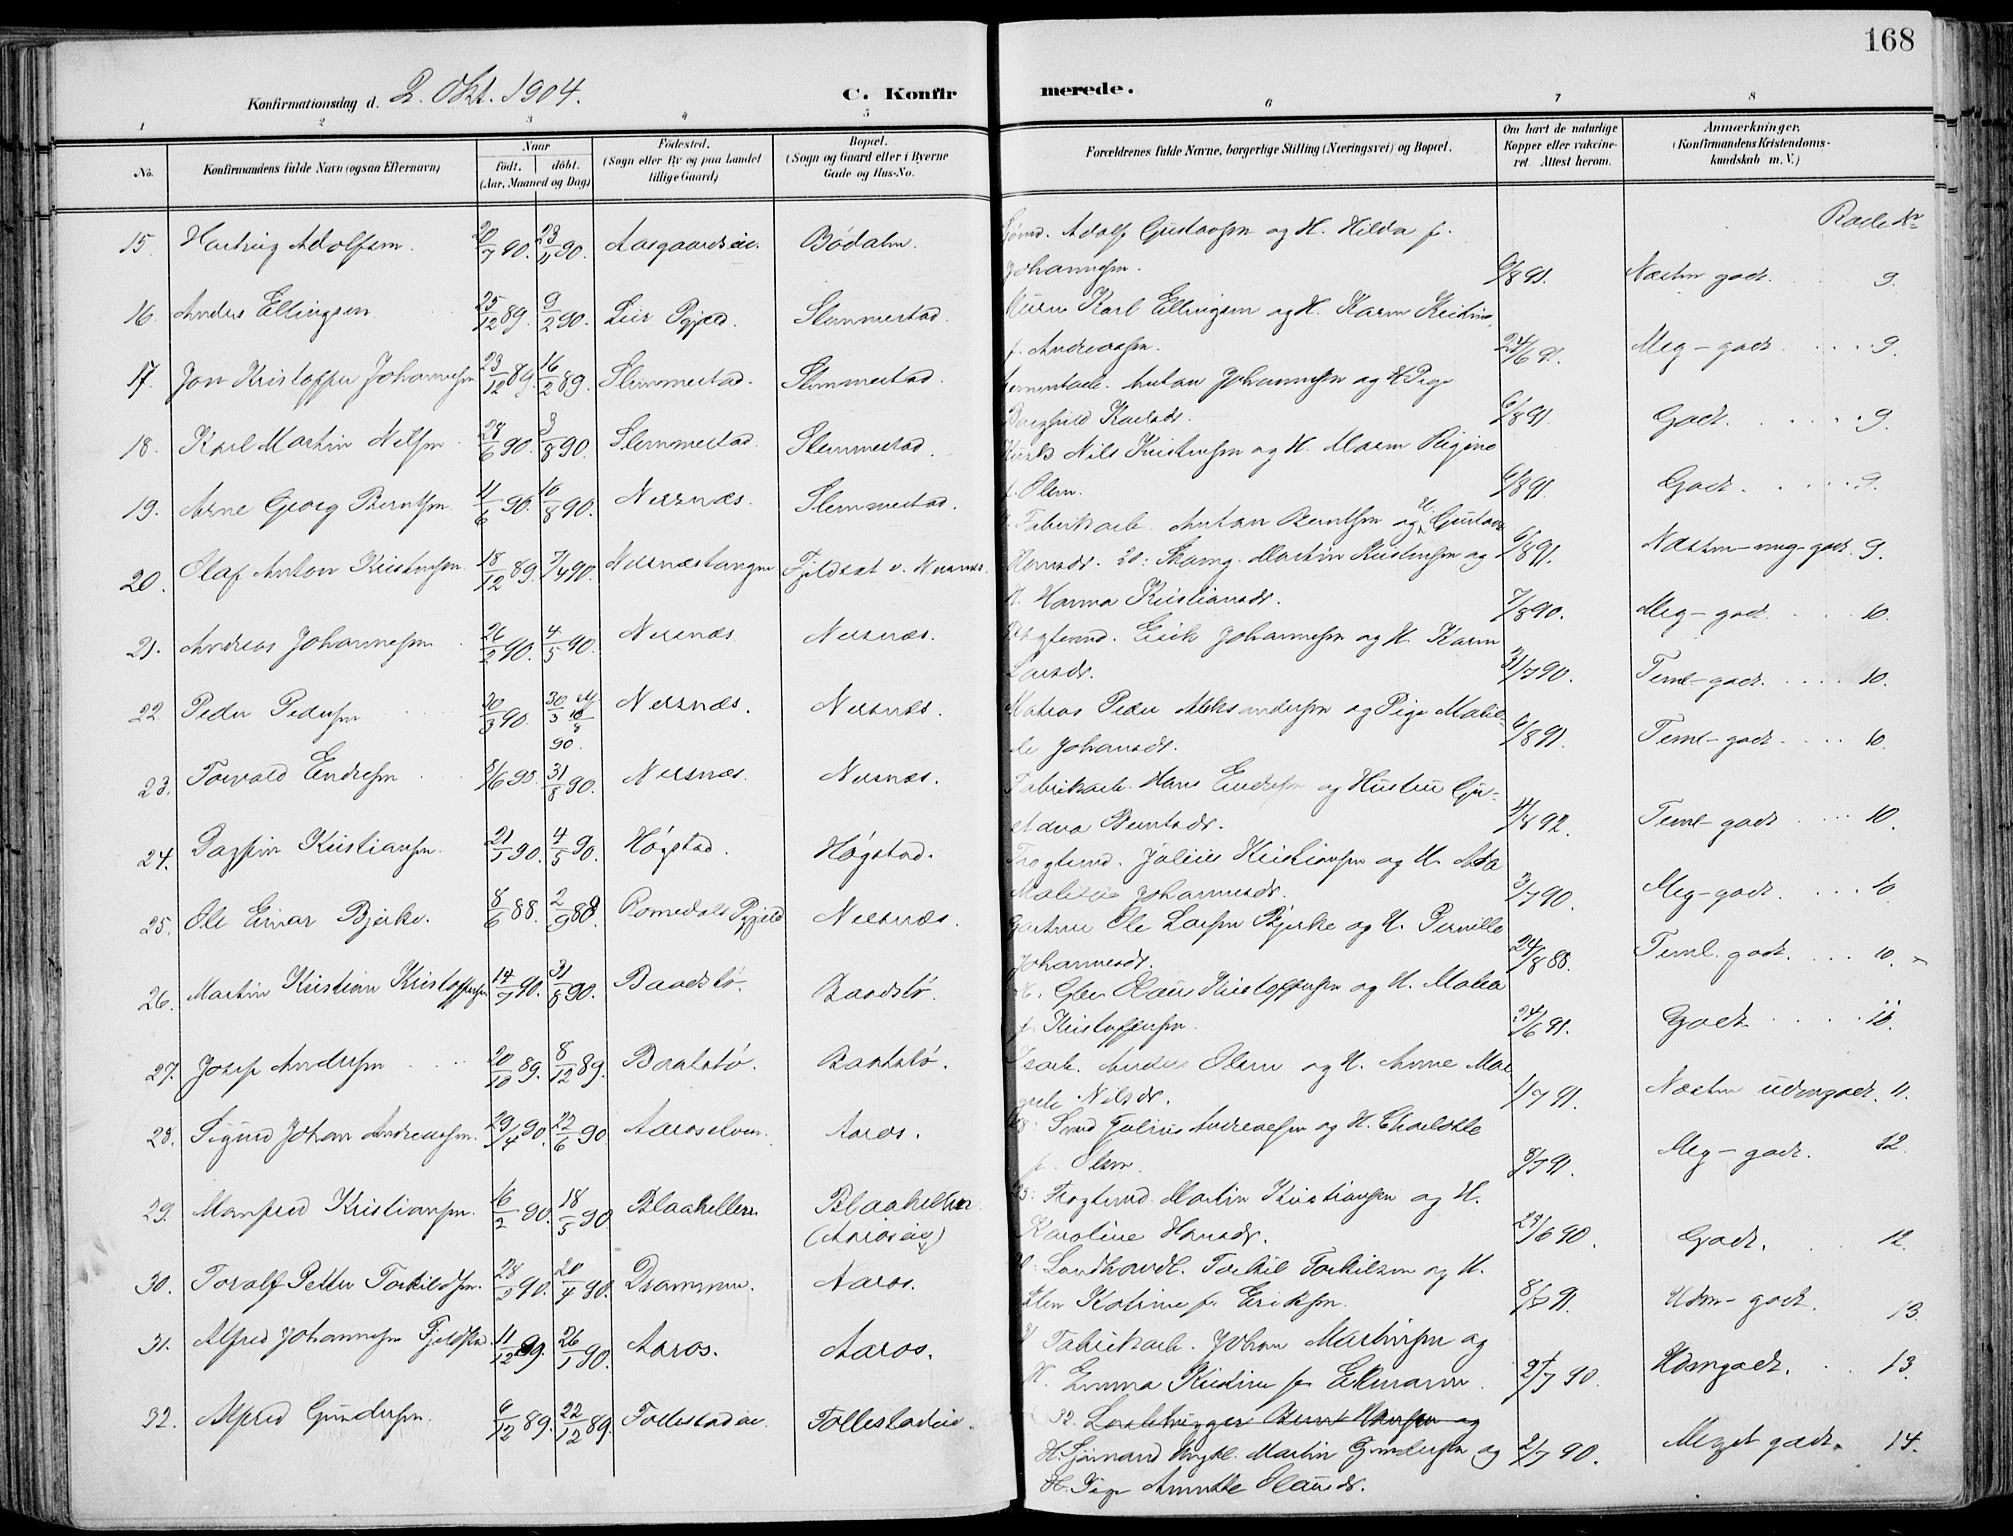 168
Konfirmationsdag d. 2. Okt. 1904.
C. Konfirmerede.
1 2 3 4 5 6 7 8
No.
Konfirmandens fulde Navn (ogsaa Efternavn)
Naar
født. døbt.
(Aar, Maaned og Dag)
Fødested.
(Sogn eller By og paa Landet
tillige Gaard)
Bopæl.
(Sogn og Gaard eller i Byerne
Gade og Hus-No.
Forældrenes fulde Navne, borgerlige Stilling (Næringsvei) og Bopæl.
Om havt de naturlige
Kopper eller vakcine-
ret. Attest herom.
Anmærkninger.
(Konfirmandens Kristendoms-
kundskab m. V.)
15. Hartvig Adolfsen. 20/7 90. Aasgaardseie. Bødalen.
Adolf Gustavsen og H. Hilda f.
Johannesen. 6/8 91. Næsten godt. 9.
16. Anders Ellingsen 25/12 89. 9/2 90. Lier Pgjæld. Slemmestad.
Karl Ellingsen og H. Karen Kristine
f. Andreassen. 24/6 91. Meg-godt. 9.
17. Jon Kristoffer Johannesen 23/12 89. 16/2 89. Slemmestad. Slemmestad.
Anton Johannesen og Pige
Ragnhild Karlsdr. 6/8 91. Godt. 9.
18. Karl Martin Nilsen 28/6 90. 3/8 90. Slemmestad. Slemmestad.
Nils Kristensen og H. Maren Regine
f. Olsen. 6/8 91. Godt. 9.
19. Arne Georg Berntsen 11/6 90. 10/8 90. Nersnæs. Slemmestad.
Fabrikarb. Anton Berntsen og H. Gustava
Hansdr. 6/8 91. Næsten-meg-godt. 9.
20. Olaf Anton Kristensen. 18/12 89. 7/4 90. Nersnæstangen Fjeldstat v. Nersnæs.
20: Martin Kristensen og
H. Hanna Kristiansdr. 7/8 90. Meg-godt. 10.
21. Andreas Johannesen 26/2 90. 4/5 90. Nersnæs. Nersnæs.
Erik Johannesen og H. Karen
Larsdr. 31/7 90. Teml-godt. 10.
22 Peder Pedersen 20/3 90. 30/3 90. Nersnæs. Nersnæs.
Matros Peder Aleksandersen og Pige Mathil-
de Johansdr. 6/8 91. Teml-godt. 10.
23. Torvald Endresen 8/6 90. 31/8 90. Nersnæs. Nersnæs.
Fabrikarb. Hans Endresen og Hustru Gu-
stava Berntsdr. 4/8 92. Teml-godt. 10.
24. Dagfin Kristiansen. 21/1 90. 4/5 90. Høgstad. Høgstad.
Julius Kristiansen og H. Ada
Johannesdr. 3/7 90. Meg-godt. 10
25. Ole Einar Bjerke. 8/6 88. 2/9 88. Romedals Pgjeld Nersnæs.
Gartner Ole Larsen Bjerke og H. Pernille
Johannesdr. 24/8 88. Teml. godt. 10.
26. Martin Kristian Kristoffersen 14/7 90. 31/8 90. Baadstø. Baadstø.
Olaus Kristoffersen og H. Malea
f. Kristoffersen. 24/6 91. Godt. 11.
27. Josef Andersen 20/10 89. 8/12 89. Baatstø. Baatstø.
Anders Olsen og H. Anne Mar-
grete Nilsdr. 1/7 91. Næsten udmgodt. 11.
28. Sigurd Johan Andreassen. 29/4 90. 22/6 90 Aaroselven. Aaros.
Julius Andreassen og H. Charlotte
f. Olsen. 8/7 91. Meg-godt. 12
29. Manfred Kristiansen. 16/2 90. 18/5 90 Blaahellen Blaahellen
(Aaroseie)
Martin Kristiansen og H.
Karoline Hansdr. 29/6 90. Godt. 12.
30. Toralf Petter Torkildsen. 28/2 90. 20/4 90. Drammen. Aaros.
Landhandl. Torkil Torkilsen og H.
Elen Katrine f. Eriksen. Udm-godt. 13
31. Alfred Johannesen Fjeldstad. 11/12 89. 26/1 90. Aaros. Aaros.
Fabrikarb. Johan Martinsen og
H. Emma Kristine f. Ekmann. 2/7 90. Udmgodt. 13.
32. Alfred Gundersen. 6/12 89. 22/12 89. Follestadeie. Follestadeie.
32.
H. Martin Gundersen og
H. Pige Annette Olausdr. 2/7 90. Meget godt. 14.